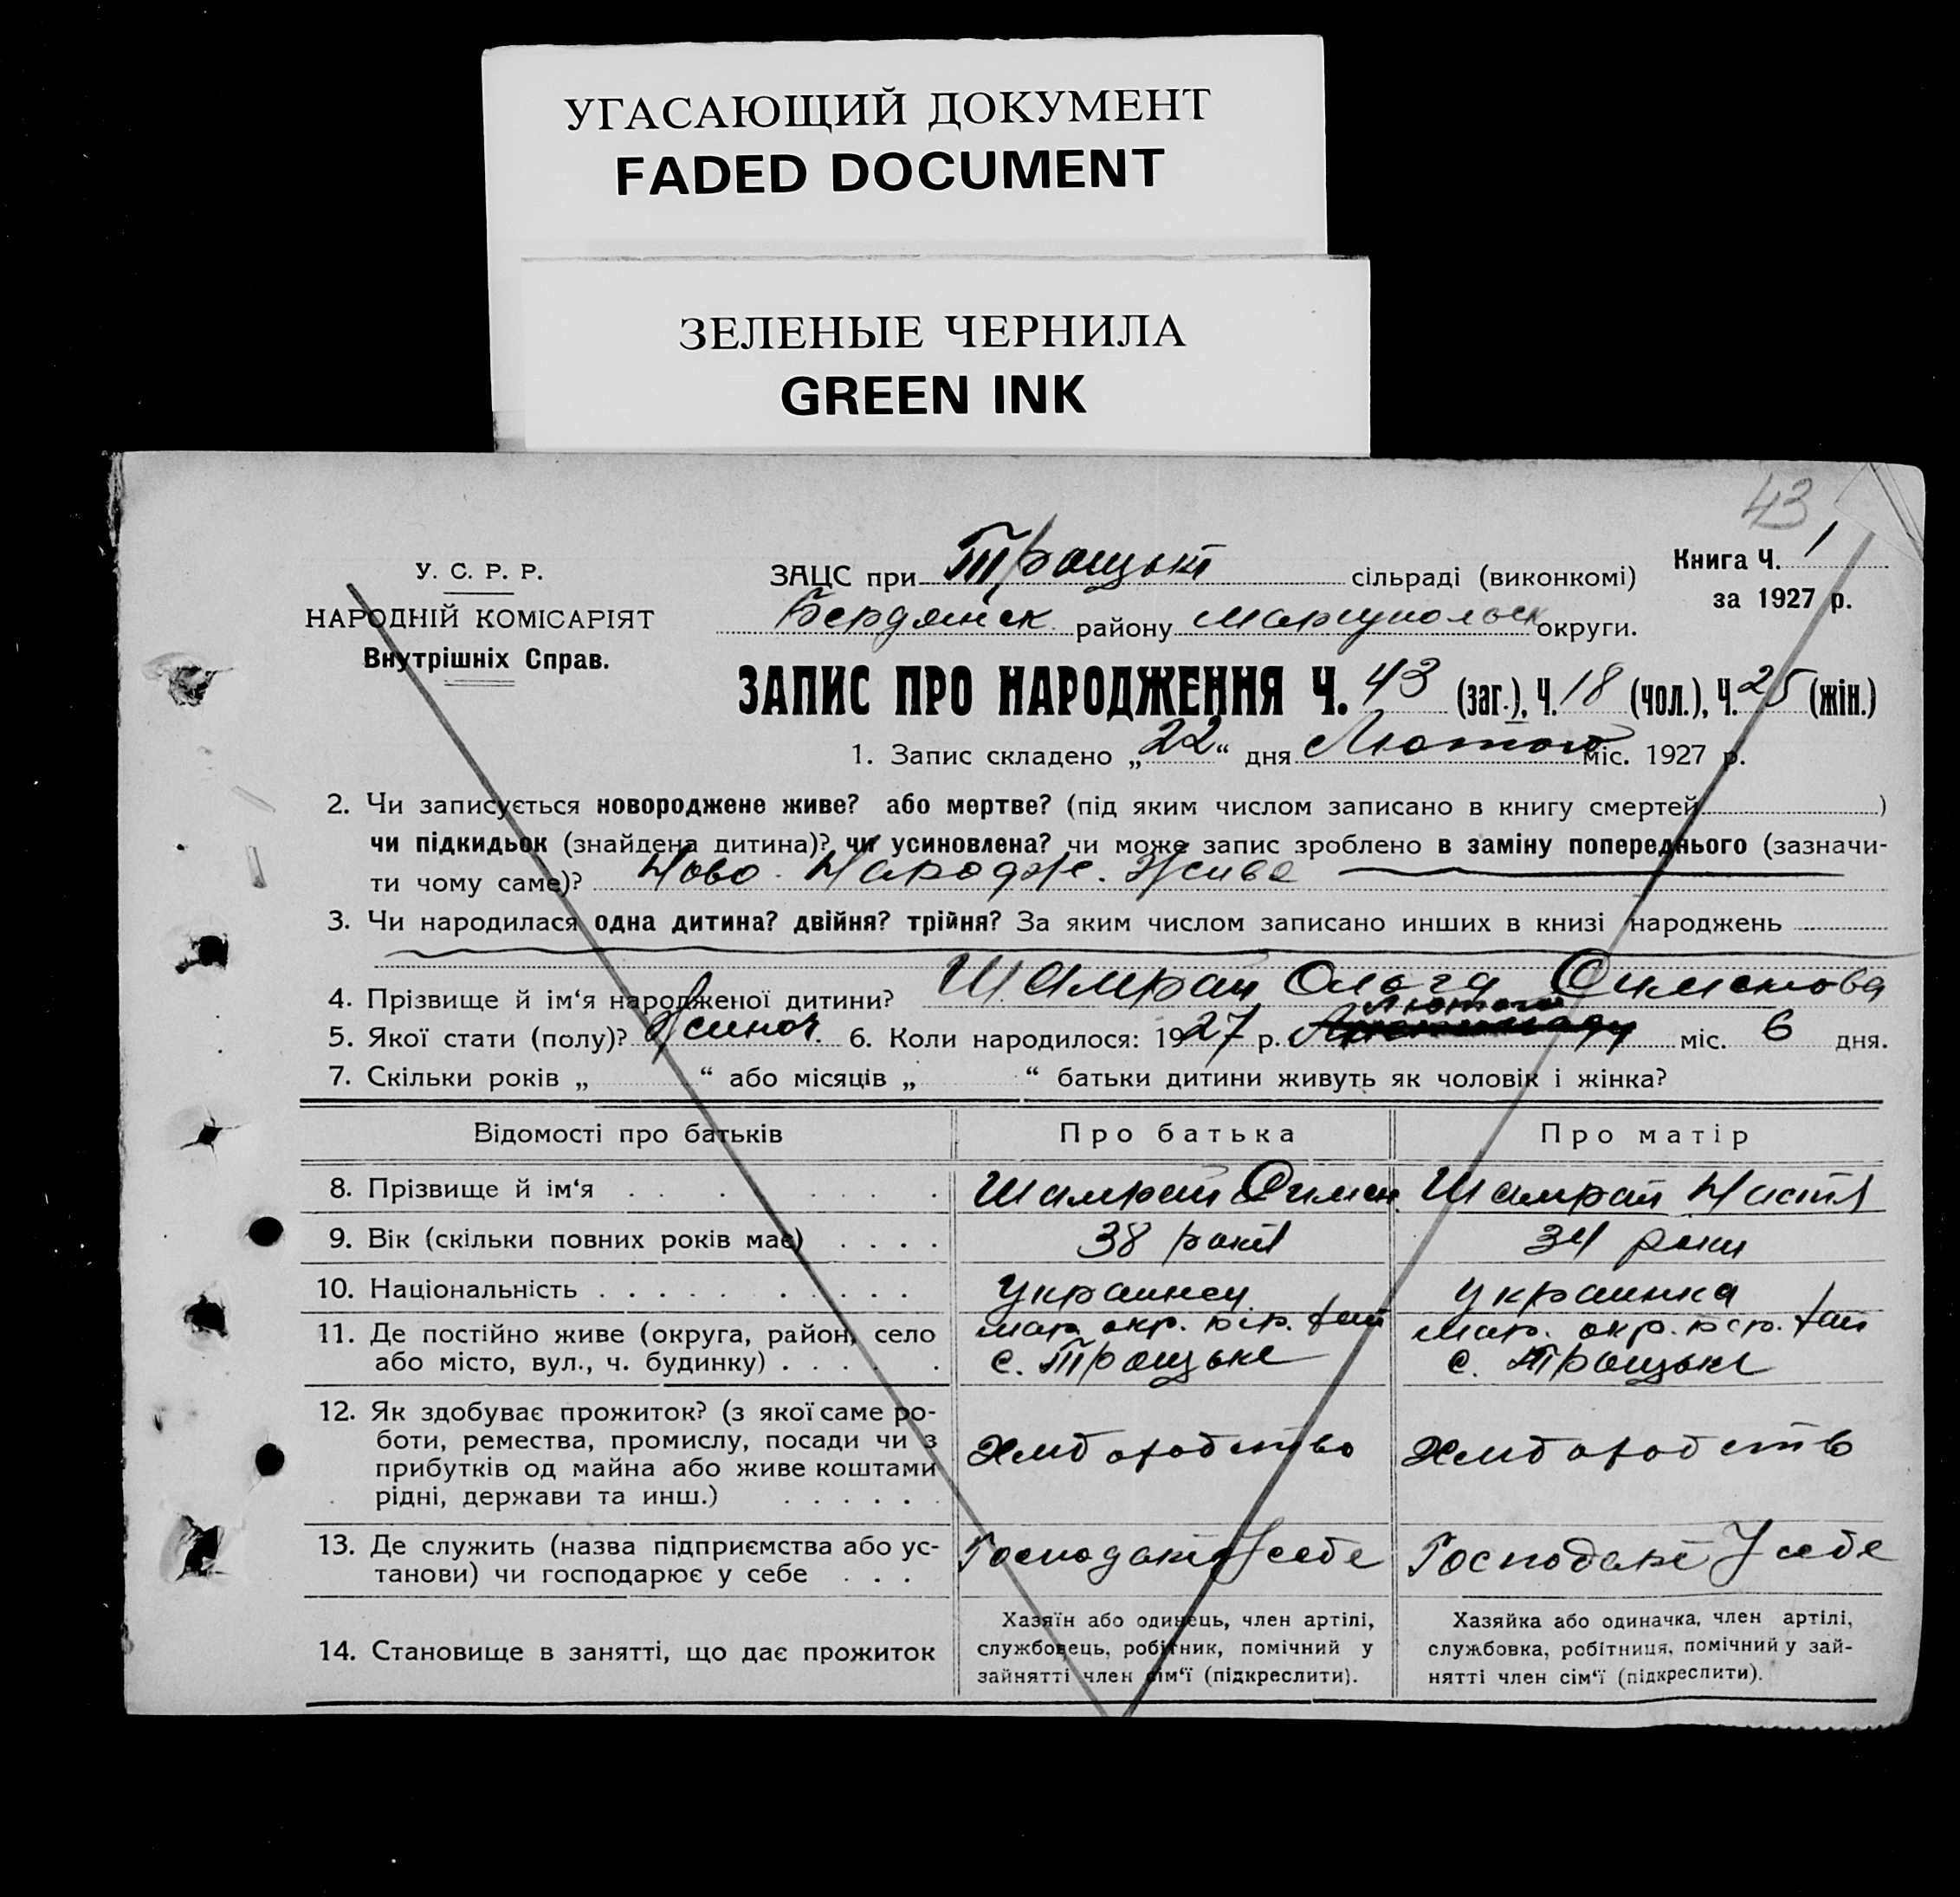 УГАСАЮЩИЙ ДОКУМЕНТ
FADED DOCUMENT
ЗЕЛЕНЫЕ ЧЕРНИЛА
GREEN INK
43
У. С. Р. Р.
НАРОДНІЙ КОМІСАРІЯТ
Внутрішніх Справ.
ЗАЦС при Троцькі сільраді (виконкомі)
Бердянск району Мариупольск округи.
Книга Ч. 1
за 1927 р.
ЗАПИС ПРО НАРОДЖЕННЯ Ч. 43 (заг.), Ч. 18 (чол.), Ч. 25 (жін.)
1. Запис складено „22“ дня Лютого міс. 1927 р.
2. Чи записується новороджене живе? або мертве? (під яким числом записано в книгу смертей )
чи підкидьок (знайдена дитина)? чи усиновлена? чи може запис зроблено в заміну попереднього (зазначи-
ти чому саме)? Ново-Народже. Жива
3. Чи народилася одна дитина? двійня? трійня? За яким числом записано инших в книзі народжень
4. Прізвище й ім‘я народженої дитини? Шамрай Ольга Симонова
5. Якої стати (полу)? Жиноч. 6. Коли народилося: 1927 р. Лютого міс. 6 дня.
7. Скільки років „ “ або місяців „ “ батьки дитини живуть як чоловік і жінка?
Відомості про батьків Про батька Про матір
8. Прізвище й ім‘я . . . . . . . Шамрай Симон Шамрай Настя
9. Вік (скільки повних років має) . . . . 38 рокі 34 роки
10. Національність . . . . . . . . . Украинец Украинка
11. Де постійно живе (округа, район, село Мар. окр. Бер. рай Мар. окр. Бер. рай
або місто, вул., ч. будинку) . . . . . с. Троцьке с. Троцьке
12. Як здобуває прожиток? (з якої саме ро-
боти, ремества, промислу, посади чи з Хлиборобство Хлиборобств
прибутків од майна або живе коштами
рідні, держави та инш.) . . . . . .
13. Де служить (назва підприємства або ус- Господарі У себе Господарі У себе
танови) чи господарює у себе . . .
14. Становище в занятті, що дає прожиток
Хазяїн або одинець, член артілі,
службовець, робітник, помічний у
зайнятті член сім‘ї (підкреслити).
Хазяйка або одиначка, член артілі,
службовка, робітниця, помічний у зай-
нятті член сім‘ї (підкреслити).